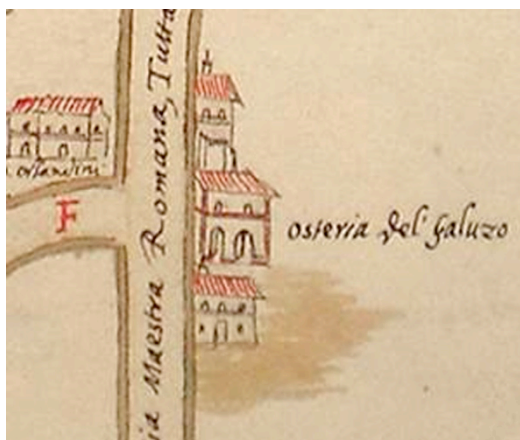 orlandini
F
ia Maestra Romana, Tutta
osteria del galuzo